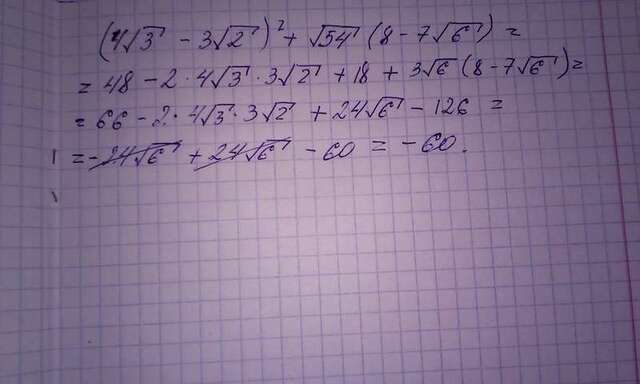 (4√3 - 3√2)² + √54 (8 - 7√6) =
= 48 - 2 · 4√3 · 3√2 + 18 + 3√6 (8 - 7√6) =
= 66 - 2 · 4√3 · 3√2 + 24√6 - 126 =
= -24√6 + 24√6 - 60 = -60.